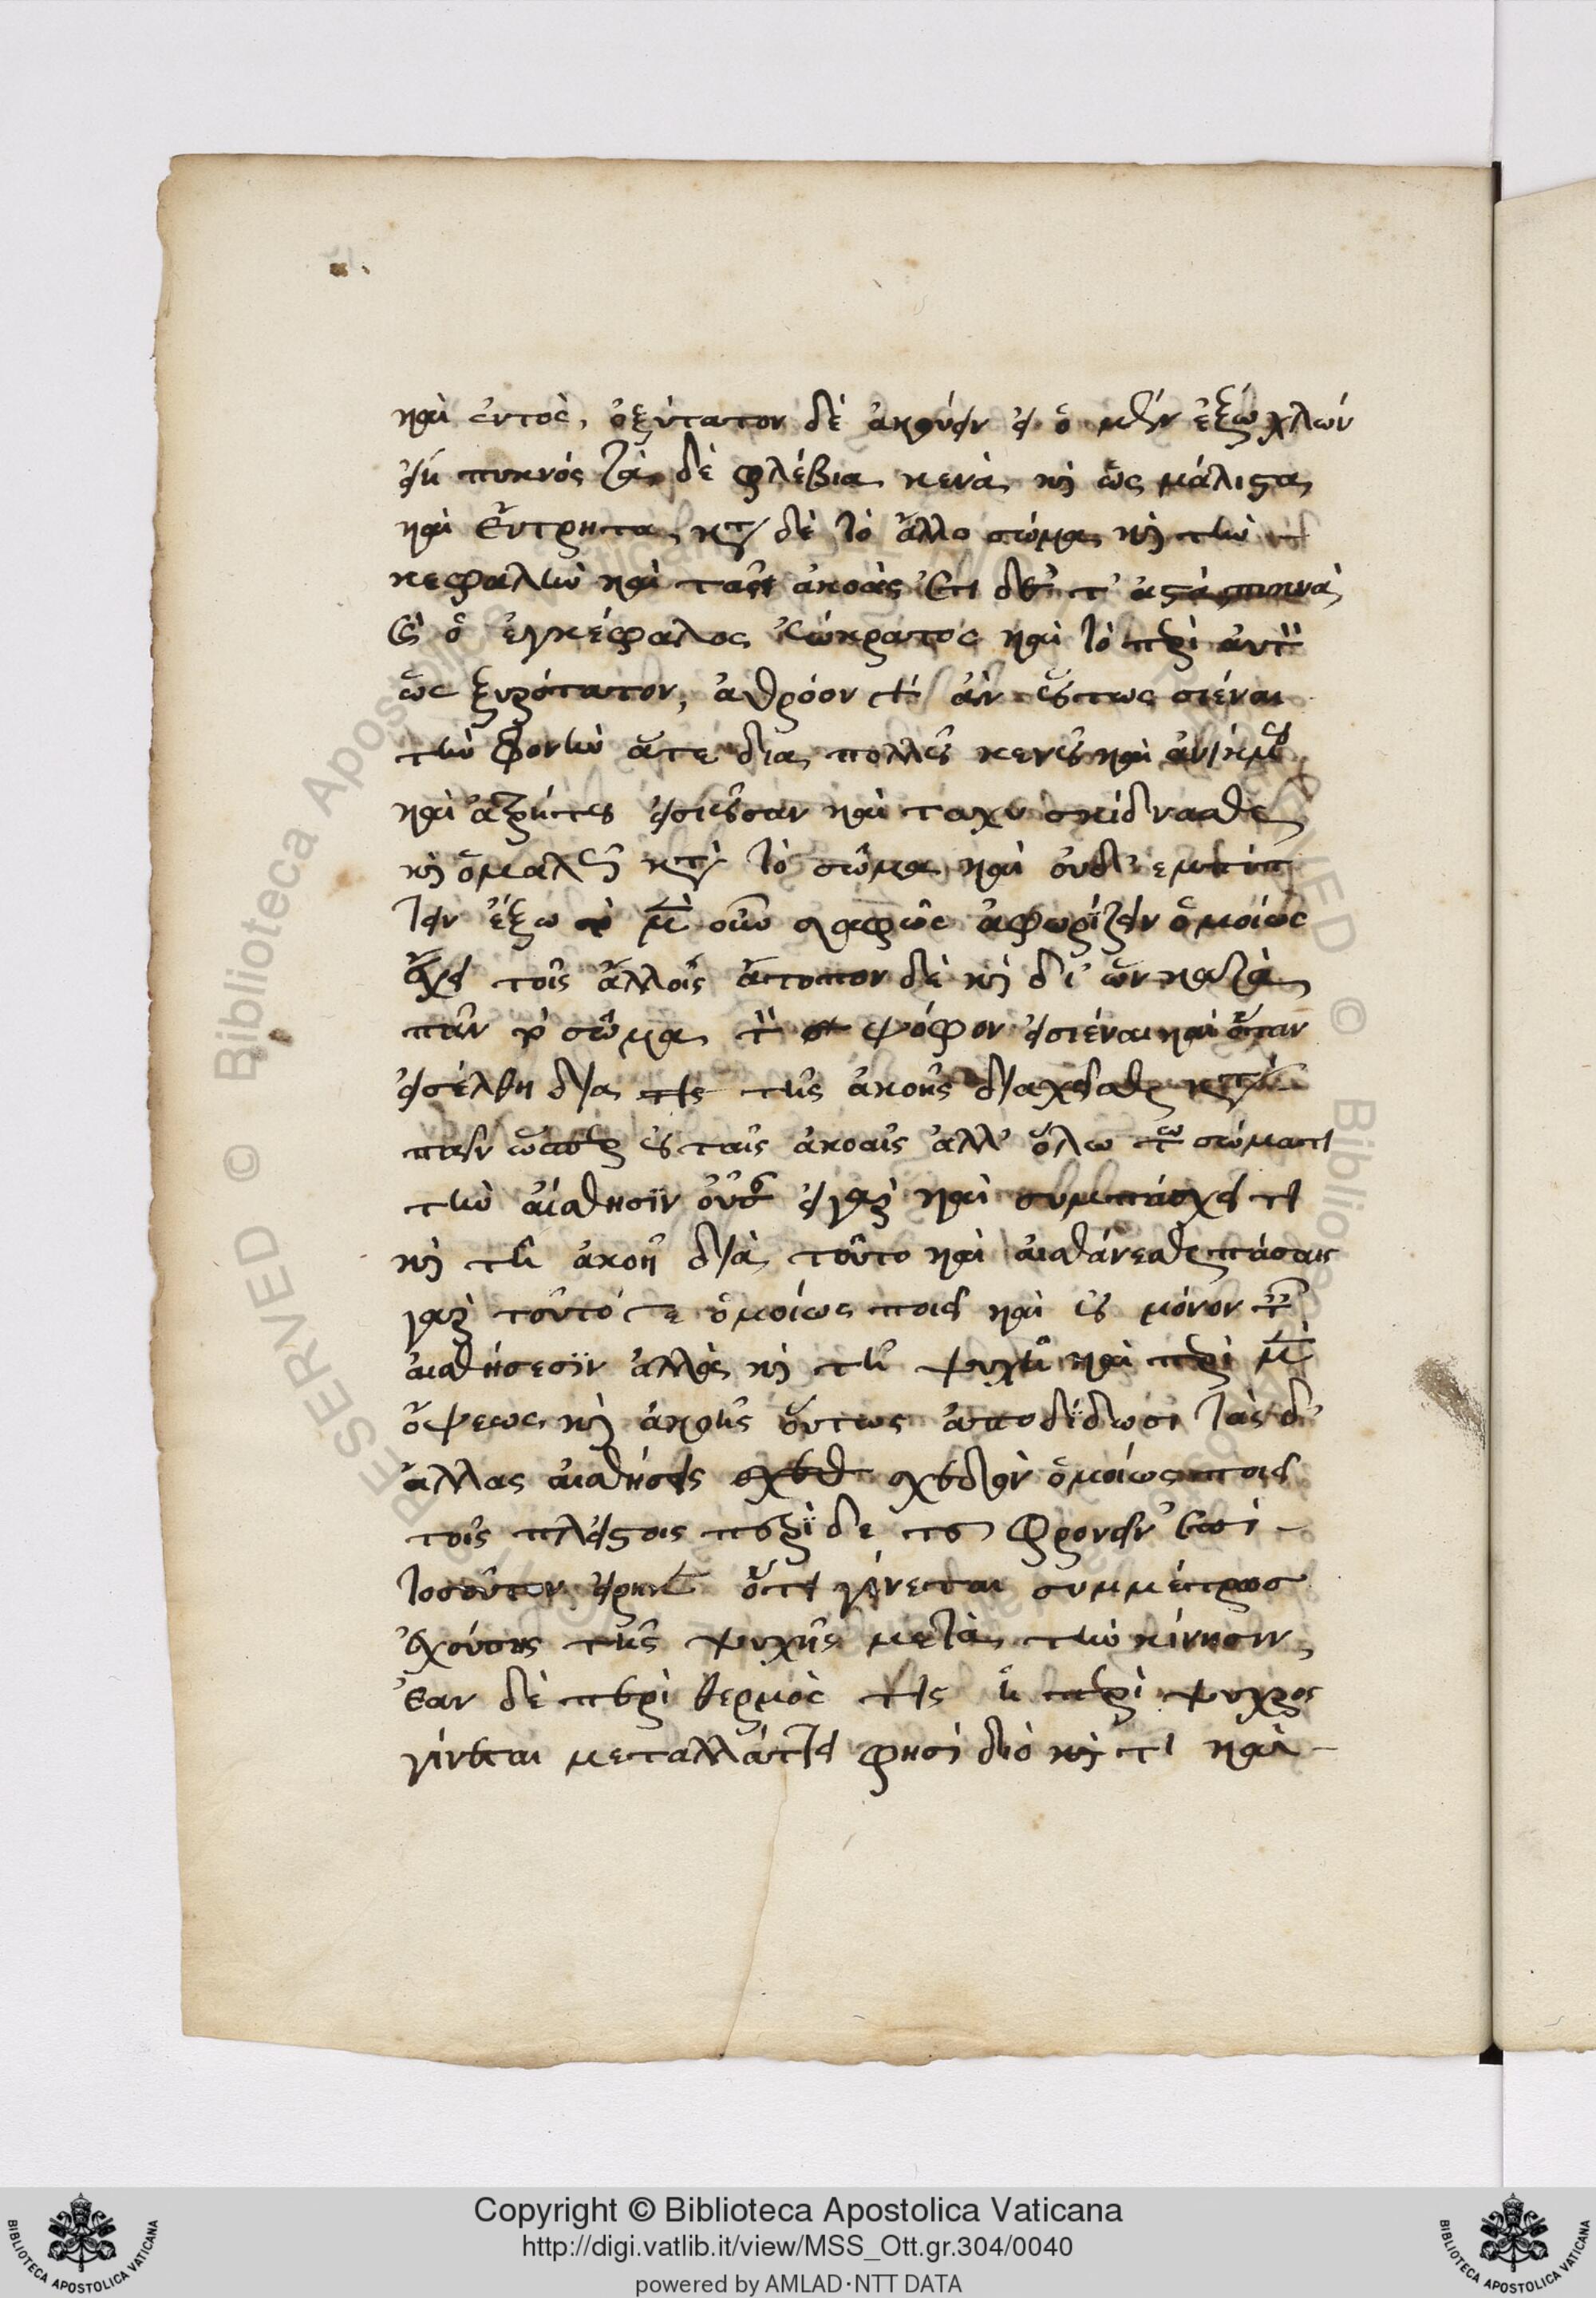 καὶ ἐντὸς, ὀξύτατον δὲ ἀκούειν εἰ ὁ μὲν ἔξω χιτών
εἴη πυκνός τὰ δὲ φλέβια κενὰ καὶ ὡς μάλιστα
καὶ εὔτρητα κατὰ δὲ τὸ ἄλλο σῶμα καὶ τὴν
κεφαλὴν καὶ τὰς ἀκοὰς ἔτι δὲ τ᾽ ὀστᾶ πυκνὰ
ὁ ἐγκέφαλος εὔκρατος καὶ τὸ περὶ αὐτὸν
ὡς ξηρότατον, ἀθρόον ἂν οὕτως σιέναι
τὴν φωνὴν ἅτε δια πολλοῦ κενοῦ καὶ ἀνίκμου
καὶ εὐτρήτου εἰσιοῦσαν καὶ ταχὺ σκίδνασθαι
καὶ ὁμαλῶς κατὰ τὸ σῶμα καὶ οὐ διεκπίπ
τειν ἔξω τὸ μὲν οὖν σαφῶς ἀφορίζειν ὁμοίως
ἔχει τοῖς ἄλλοις ἄτοπον δὲ καὶ δι᾽ ὧν κατὰ
πᾶν τὸ σῶμα τὸν ψόφον εἰσιέναι καὶ ὅταν
εἰσέλθῃ δια τῆς ἀκοῆς διαχεῖσθαι κατὰ
πᾶν ὥσπερ οὐ ταῖς ἀκοαῖς ἀλλ᾽ ὅλῳ τῷ σώματι
τὴν αἴσθησιν οὖσαν εἰ γὰρ καὶ συμπάσχει τι
καὶ τῇ ἀκοῇ διὰ τοῦτο καὶ αἰσθάνεσθαι πάσαις
γὰρ τοῦτό τε ὁμοίως ποιεῖ καὶ οὐ μόνον ταῖς
αἰσθήσεσιν ἀλλὰ καὶ τῇ ψυχῇ καὶ περὶ μὲν
ὄψεως καὶ ἀκοῆς οὕτως ἀποδίδωσι τὰς δ᾽
ἄλλας αἰσθήσεις σχεδὸν ὁμοίως ποιεῖ
τοῖς πλείστοις περὶ δὲ τοῦ φρονεῖν ἐπὶ
τοσοῦτον εἴρηκεν ὅτι γίνεται συμμέτρως
ἐχούσης τῆς ψυχῆς μετὰ τὴν κίνησιν
Ἐὰν δὲ περὶ θερμὸς τις ἢ περὶ ψυχρος
γίνεται μεταλλάττει φησί διὸ καὶ τι καὶ